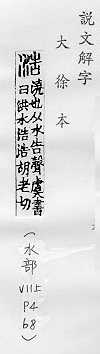 說文解字
大徐本
浩
澆也从水告聲虞書
曰洪水浩浩胡老切
(水部
VII上
P4
68)